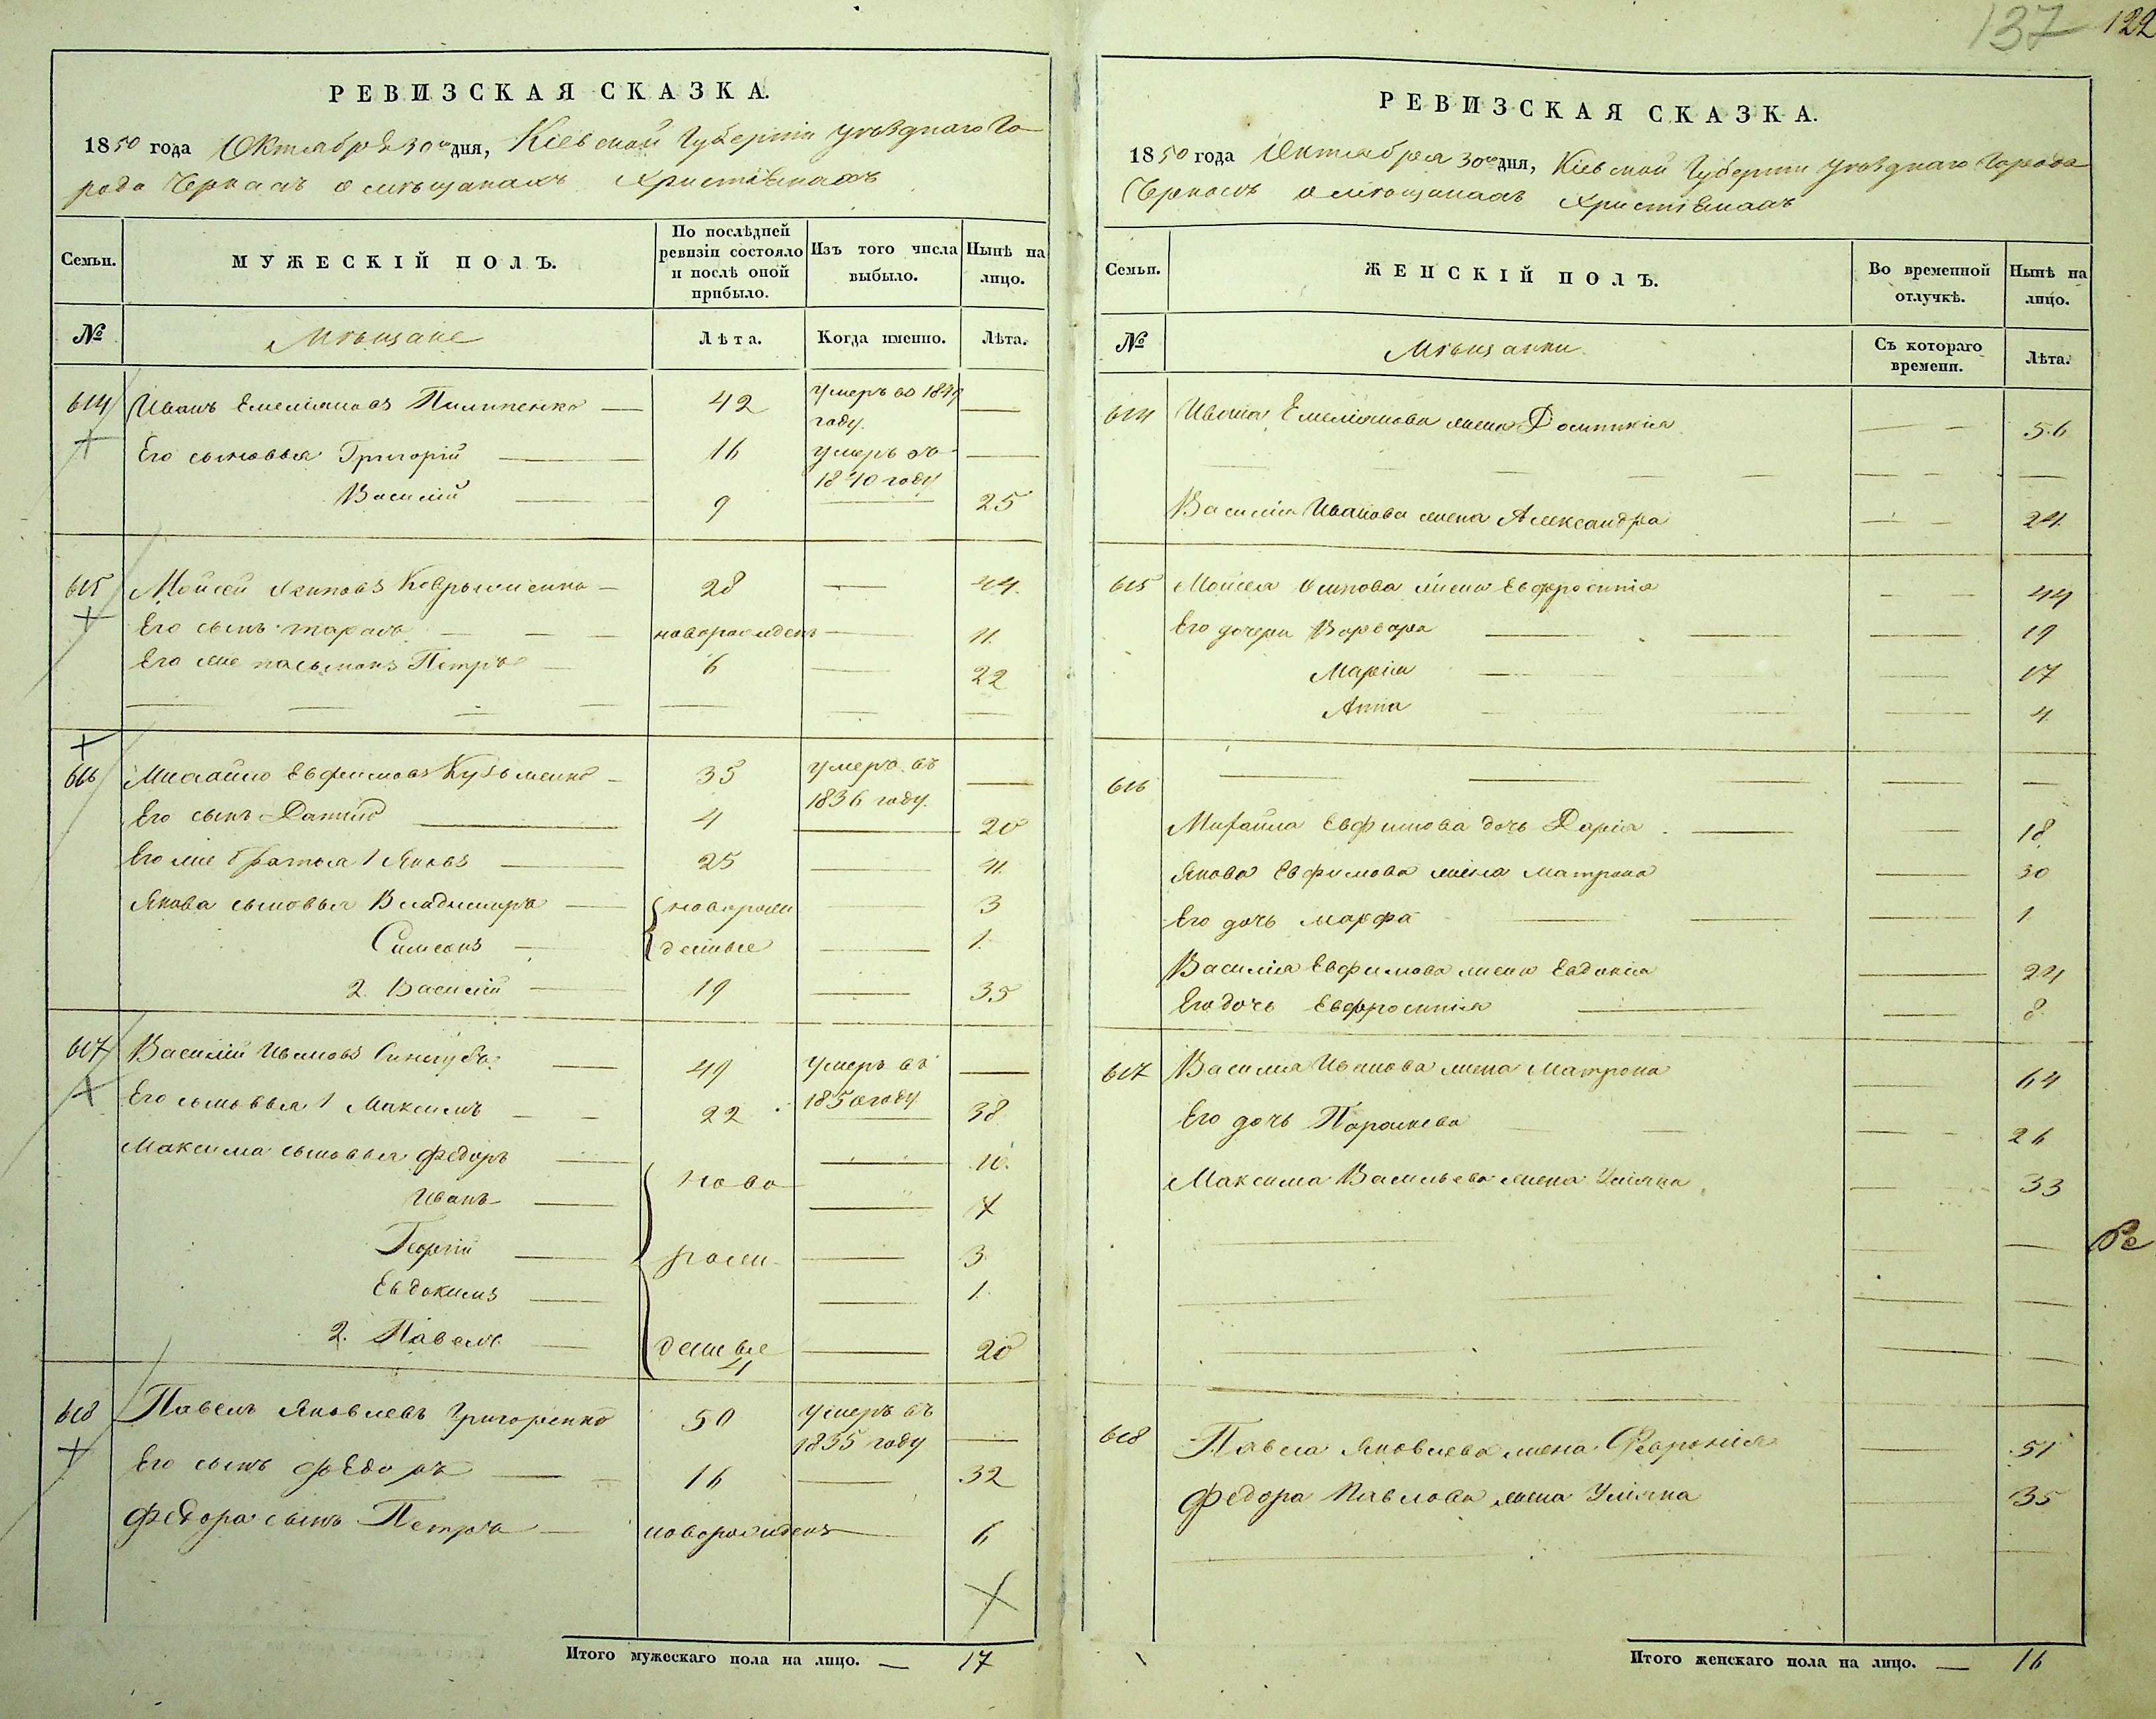 137 122
РЕВИЗСКАЯ СКАЗКА.
1850 года Октября 30го дня, Кіевской Губерніи уѣзднаго Го-
рода Черкасъ о мѣщанахъ Христіянахъ
Семьи.
МУЖЕСКІЙ ПОЛЪ.
По послѣдней ревизіи состояло и послѣ оной прибыло.
Изъ того числа выбыло.
Нынѣ на лицо.
№ Мѣщане Лѣта. Когда именно. Лѣта.
614 Иванъ Емеліяновъ Пилипенко — 42 умеръ въ 1849 году. —
Его сыновья Григорій — 16 умеръ въ 1840 году —
Василій — 9 — 25
615 Мойсей Осиповъ — 28 — 44.
Его сынъ Тарасъ — новорожденъ — 11.
Его же пасынокъ Петръ — 6 — 22
616 Михайло Евфимовъ Кузьменко — 35 умеръ въ 1836 году. —
Его сынъ Данило — 4 — 20
Его же братья 1 Яковъ — 25 — 41.
Якова сыновья Владимиръ — новорож — 3
Симеонъ — денные — 1.
2. Василій — 19 — 35
617 Василій Ивановъ Синегубъ — 49 умеръ въ 1850 году —
Его сыновья 1 Максимъ — 22 — 38
Максима сыновья Федоръ — ново — 10.
Иванъ — — 7
Георгій — рож — 3.
Евдокимъ — — 1.
2. Павелъ — денные 4 — 20
618 Павелъ Яковлевъ Григоренко 50 умеръ въ 1835 году —
Его сынъ Федоръ — 16 — 32
Федора сынъ Петръ — новорожденъ — 6
Итого мужескаго пола на лицо. — 17
РЕВИЗСКАЯ СКАЗКА.
1850 года Октября 30го дня, Кіевской Губерніи уѣзднаго Города
Черкасъ о мѣщанахъ Христіянахъ
Семьи.
ЖЕНСКІЙ ПОЛЪ.
Во временной отлучкѣ.
Нынѣ на лицо.
№ Мѣщанки Съ котораго времени. Лѣта.
614 Ивана Емеліянова жена Домникія — 56
Василія Иванова жена Александра — 24.
615 Мойсея Осипова жена Евфросинія — 44
Его дочери Варвара — 19
Марія — 17
Анна — 4
616 — — —
Михайла Евфимова дочь Дарія — 18
Якова Евфимова жена Матрона — 30
Его дочь Марфа — 1
Василія Евфимова жена Евдокія — 24
Его дочь Евфросинія — 8
617 Василія Иванова жена Матрона — 64
Его дочь Параскева — 26
Максима Васильева жена Уліяна — 33
Ре
618 Павла Яковлева жена Февронія — 51
Федора Павлова жена Уліяна — 35
Итого женскаго пола на лицо. — 16